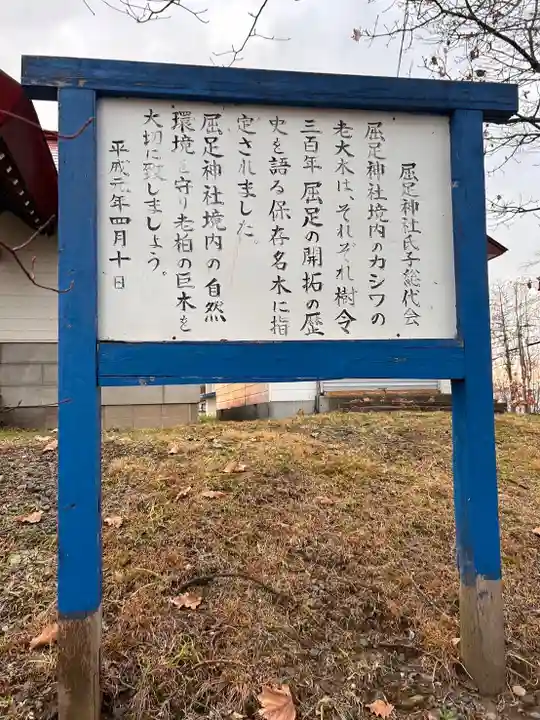 屈足神社氏子総代会
屈足神社境内のカシワの
老大木は、それぞれ樹令
三百年屈足の開拓の歴
史を語る保存名木に指
定されました。
屈足神社境内の自然
環境を守り老柏の巨木を
大切に致しましょう。
平成元年四月十日